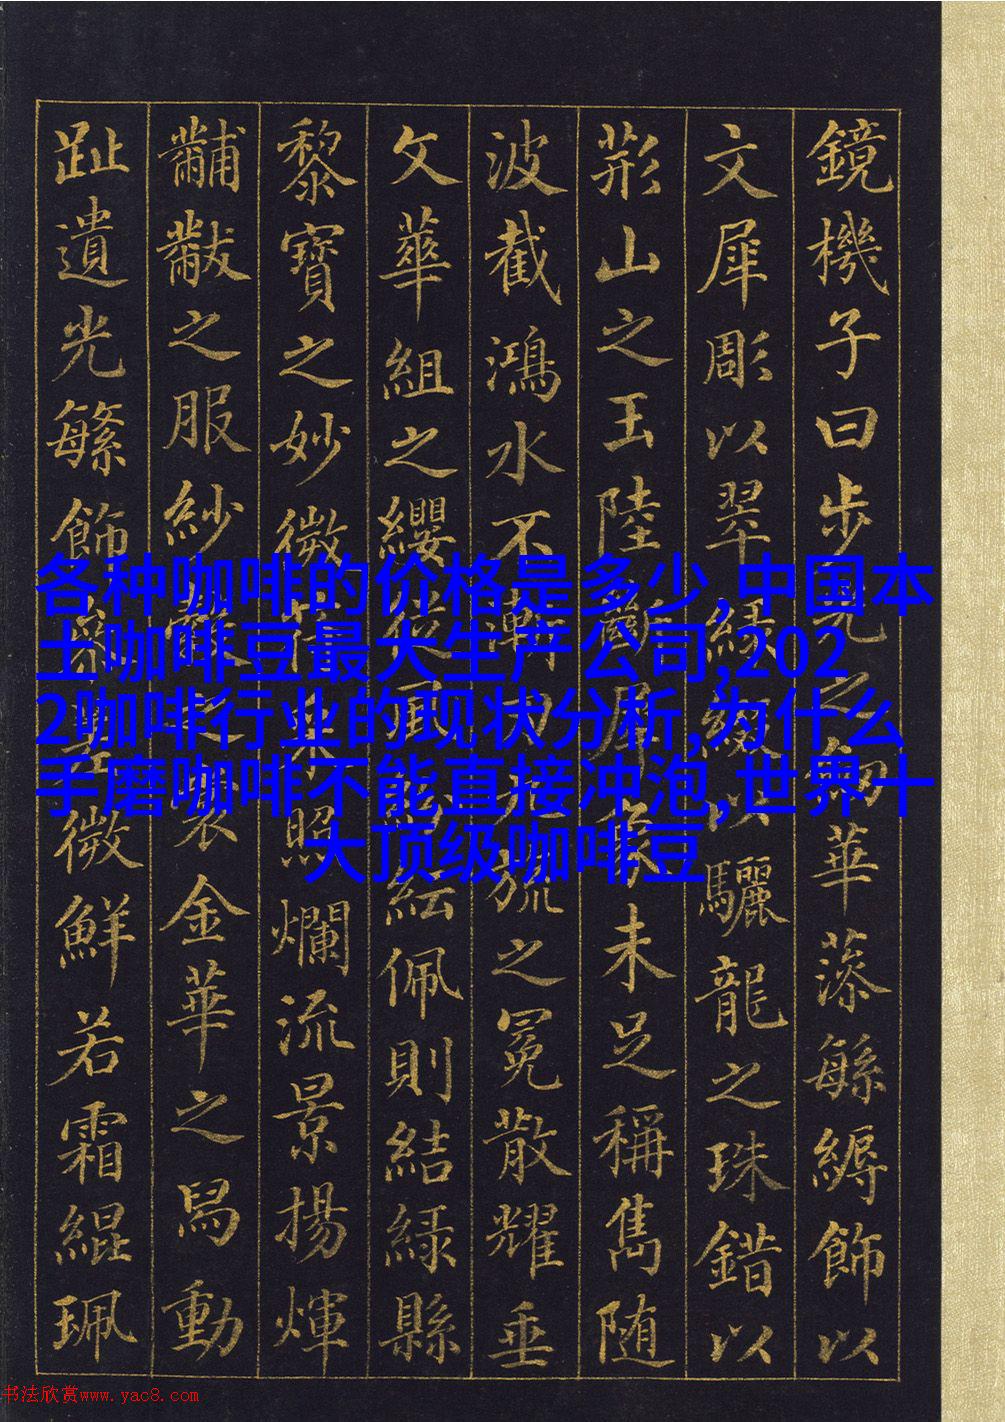 鏡機子曰步光之劍華藻緐縟飾以
文犀彫以翠綠綴以驪龍之珠錯以
荊山之玉陸斷犀象未足稱雋随
波截鴻水不漸刃九旒之冕散耀垂
文華組之纓從風紛紜佩則結緑縣
黎寶之妙微符采照爛流景揚煇
黼黻之服紗縠之裳金華之舄動
趾遺光繁飾參差微鮮若霜緄珮
各种咖啡的价格是多少,中国本
土咖啡豆最大生产公司,202
2咖啡行业的现状分析,为什么
手磨咖啡不能直接冲泡,世界十
大顶级咖啡豆
书法欣赏www.yac8.com